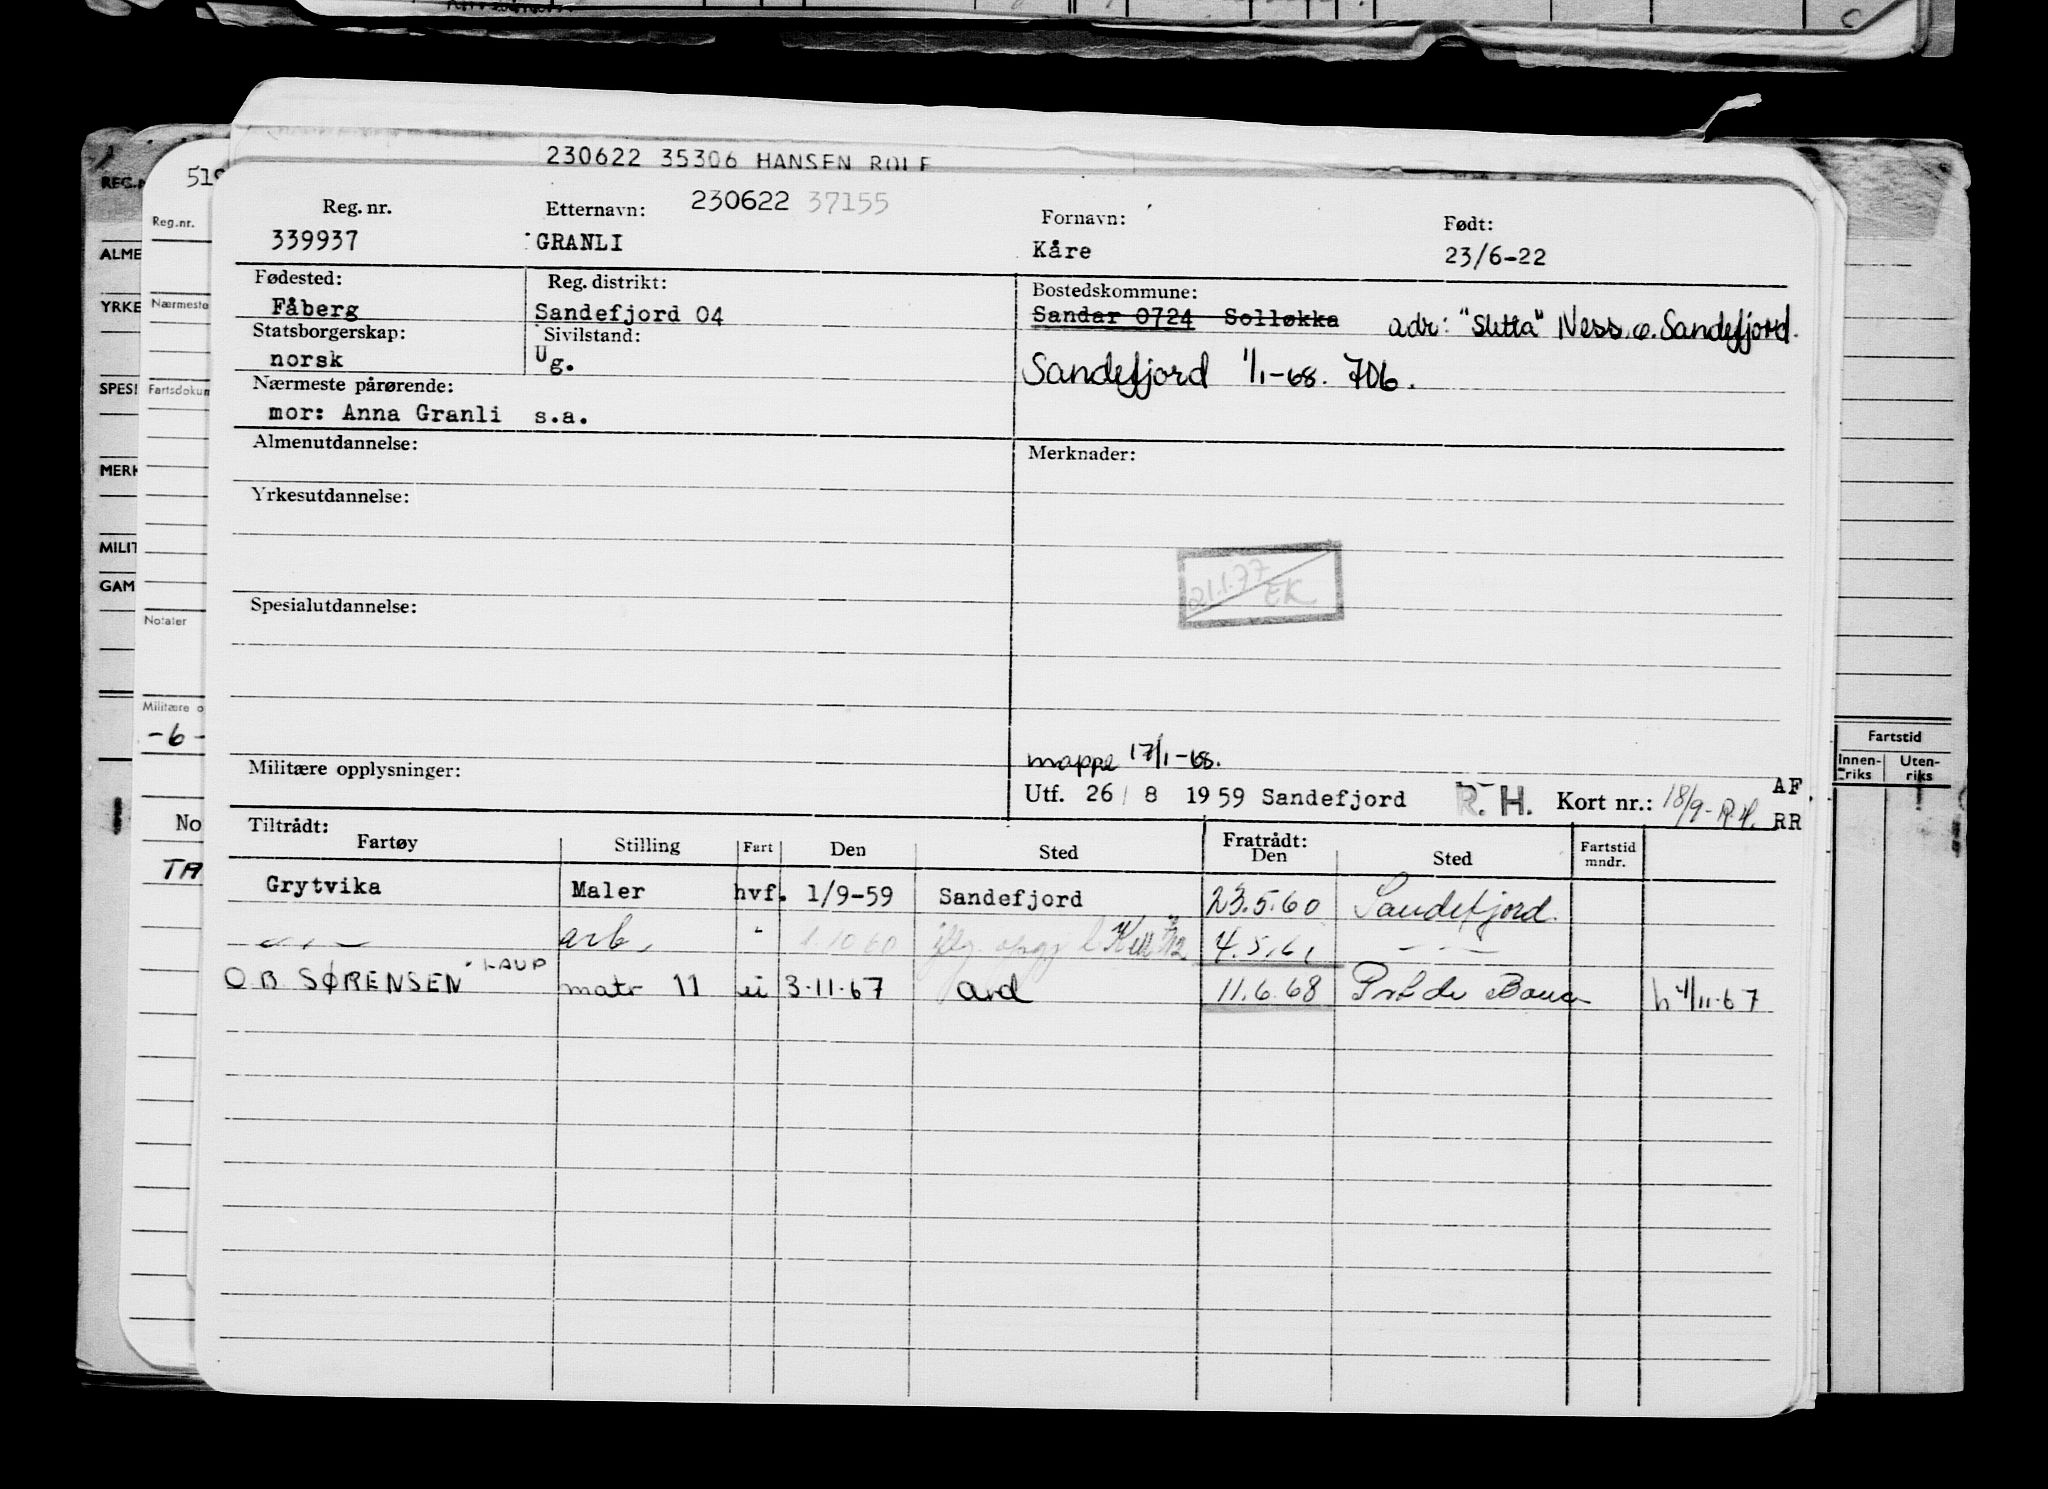 230622 35306 HANSEN ROLF
Reg. nr. Etternavn: 230622 37155 Fornavn: Født:
339937 GRANLI Kåre 23/6-22
Fødested: Reg. distrikt: Bostedskommune:
Fåberg Sandefjord 04 Sandar 0724 Solløkka adr: "Sletta" Ness. o. Sandefjord.
Statsborgerskap: Sivilstand:
norsk Ug. Sandefjord 1/1-68. 706.
Nærmeste pårørende:
mor: Anna Granli s.a.
Almenutdannelse: Merknader:
Yrkesutdannelse:
21.1.77 EK
Spesialutdannelse:
mappe 17/1-68.
Militære opplysninger: Utf. 26/ 8 1959 Sandefjord R. H. Kort nr.: 18/9- R.H. AF. RR
Tiltrådt: Fratrådt:
Fartøy Stilling Fart Den Sted Den Sted Fartstid mndr.
Grytvika Maler hvf. 1/9-59 Sandefjord 23.5.60 Sandefjord.
— " — arb. " 1.10 60 4.5.61 — " —
O B SØRENSEN matr 11 ui 3.11.67 11.6.68 h 4/11-67
REG.N
ALME
YRKE
SPESI
MERK
MILIT
GAM
519
Reg.nr.
Nærmeste
Fartsdokum
Notater
Militære o
-6-
No
TA
Fartstid
Innen-riks Uten-riks